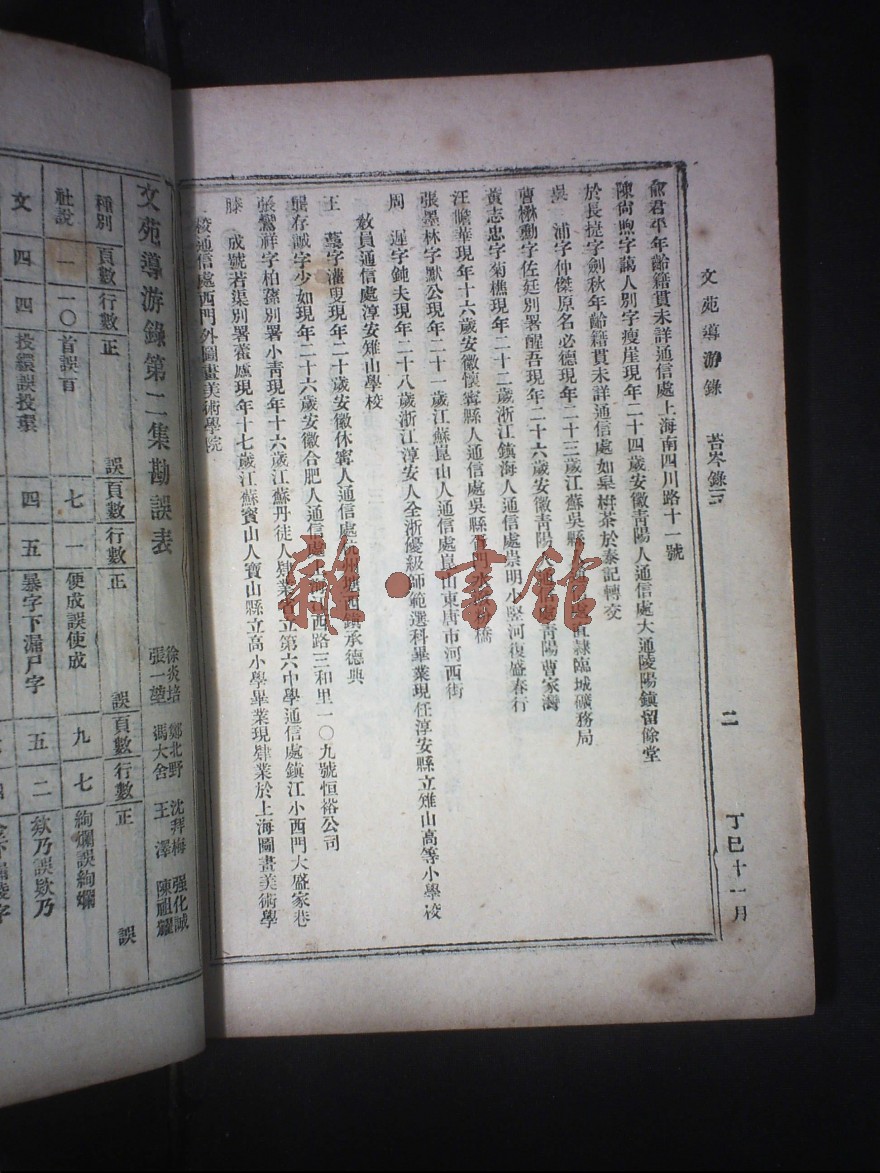 文苑導游錄 苔岑錄三 二 丁巳十一月
俞君平年齡籍貫未詳通信處上海南四川路十一號
陳尚煦字藹人別字瘦崖現年二十四歲安徽青陽人通信處大通陵陽鎮留餘堂
於長撎字劍秋年齡籍貫未詳通信處如臯栟茶於泰記轉交
吳 浦字仲傑原名必德現年二十三歲江蘇吳縣 直隸臨城礦務局
曹楙勳字佐廷別署醒吾現年二十六歲安徽青陽人通 青陽曹家灣
黃志忠字菊樵現年二十二歲浙江鎮海人通信處崇明小竪河復盛春行
汪瞻華現年十六歲安徽懷寧縣人通信處吳縣 橋
張墨林字默公現年二十一歲江蘇崑山人通信處崑山東唐市河西街
周 遲字鈍夫現年二十八歲浙江淳安人全浙優級師範選科畢業現任淳安縣立雉山高等小學校
教員通信處淳安雉山學校
王 蕚字瀟叟現年二十歲安徽休寧人通信處杭州塘西鎮承德典
龔存誠字少如現年二十六歲安徽合肥人通信處上海山西路三和里一〇九號恒裕公司
張鸞祥字柏蓀別署小青現年十六歲江蘇丹徒人肄業省立第六中學通信處鎮江小西門大盛家巷
滕 成號若渠別署 廬現年十七歲江蘇寶山人寶山縣立高小學畢業現肄業於上海圖畫美術學
校通信處西門外圖畫美術學院
徐炎培 鄭北野 沈拜梅 强化誠
張一堃 馮大舍 王 澤 陳祖耀
文苑導游錄第二集勘誤表
種別 頁數 行數 正 誤 頁數 行數 正 誤 頁數 行數 正 誤
社說 一 一〇 首誤百 七 一 便成誤使成 九 七 絢爛誤絢斕
文 四 四 投繯誤投環 四 五 暴字下漏尸字 五 二 欸乃誤欵乃